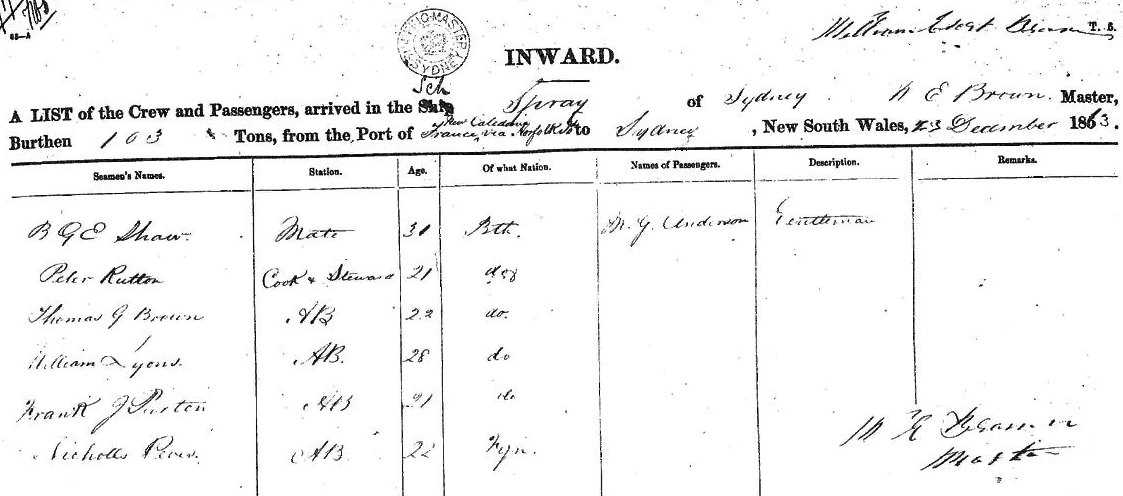 65—A
T. 5.
INWARD.
Sch
A LIST of the Crew and Passengers, arrived in the Ship Spray of Sydney W E Brown Master,
New Caledonia
Burthen 103 Tons, from the Port of France via Norfolk Is to Sydney, New South Wales, 23 December 1863.
Seamen's Names. Station. Age. Of what Nation. Names of Passengers. Description. Remarks.
B G E Shaw Mate 31 Bth. G. Anderson Gentleman
Peter Rutton Cook & Steward 21 do
Thomas G Brown AB 22 do.
William Lyons. AB. 28 do
Frank J Purton AB 21 do
Nicholls AB 22 Fgn.
W E Brown
Master